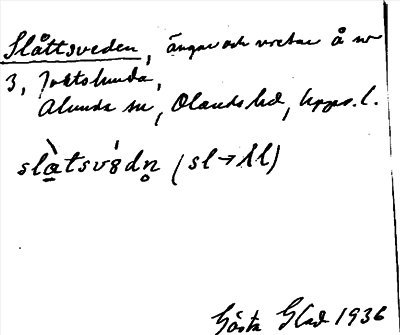 Slåttsveden, ängar och vretar å nr
3, Foktslunda,
Alunda sn, Olands hd, Upps. l.
slàtsvédn̥ (sl→λl)
Gösta Glad 1936